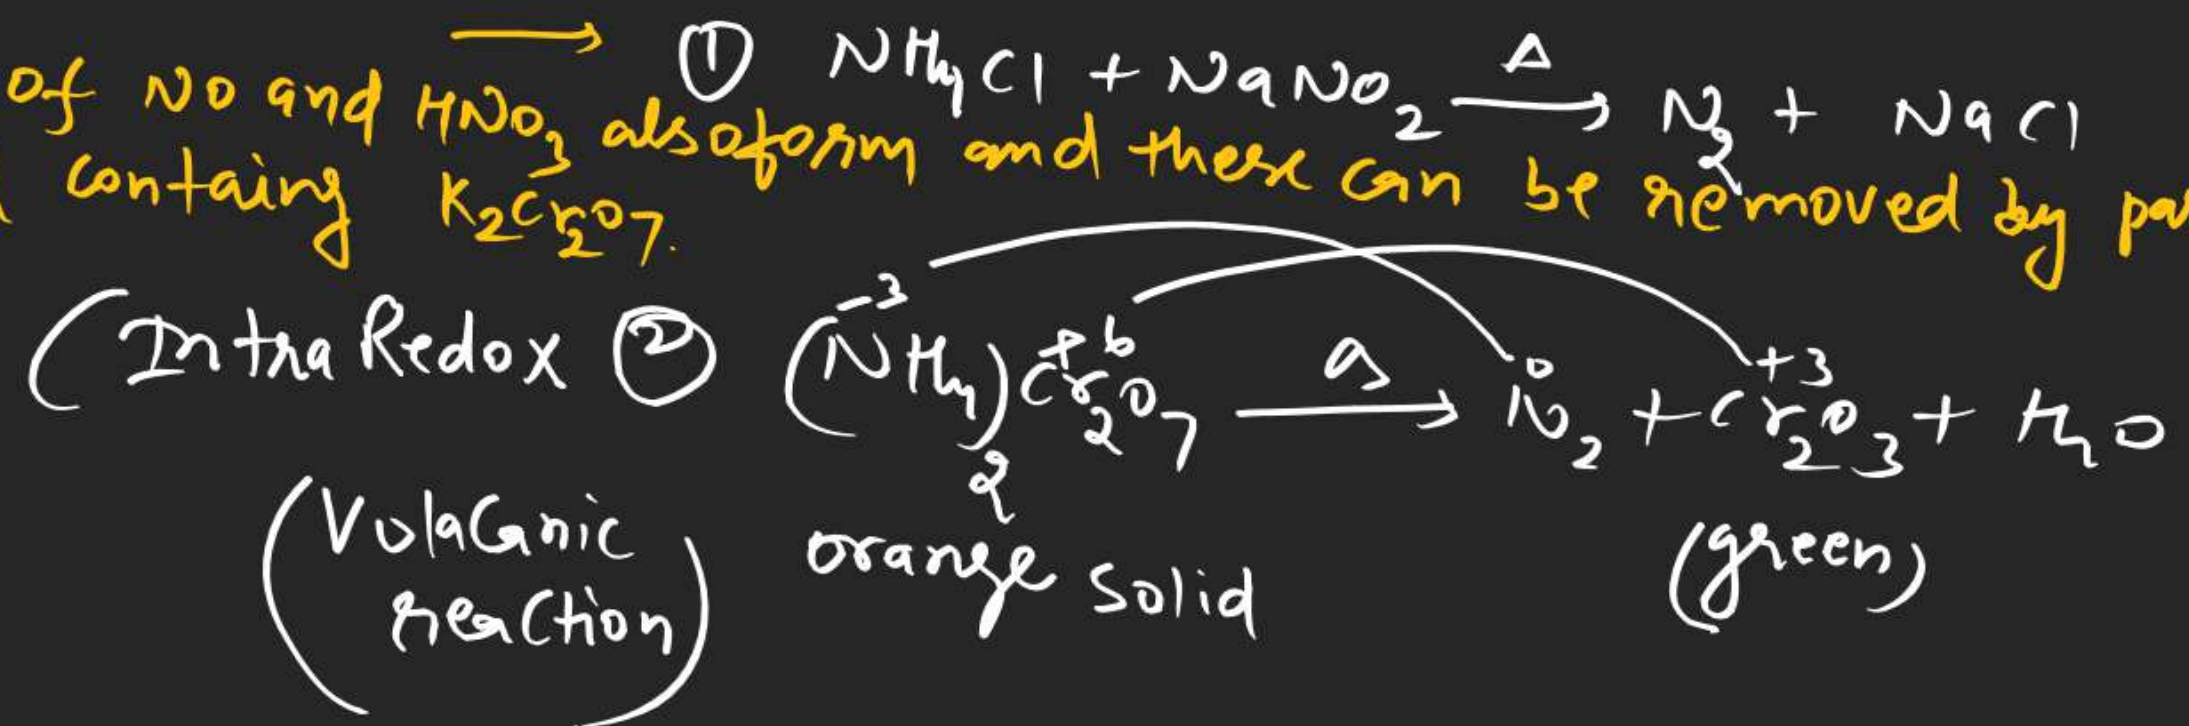 → ① NH4Cl + NaNO2 —Δ→ N2 + NaCl
of NO and HNO3 also form and these can be removed by pa
containg K2Cr2O7.
-3 +6 0 +3
(Intra Redox ② (NH4)2Cr2O7 —Δ→ N2 + Cr2O3 + H2O
(Volacanic orange solid (green)
reaction)